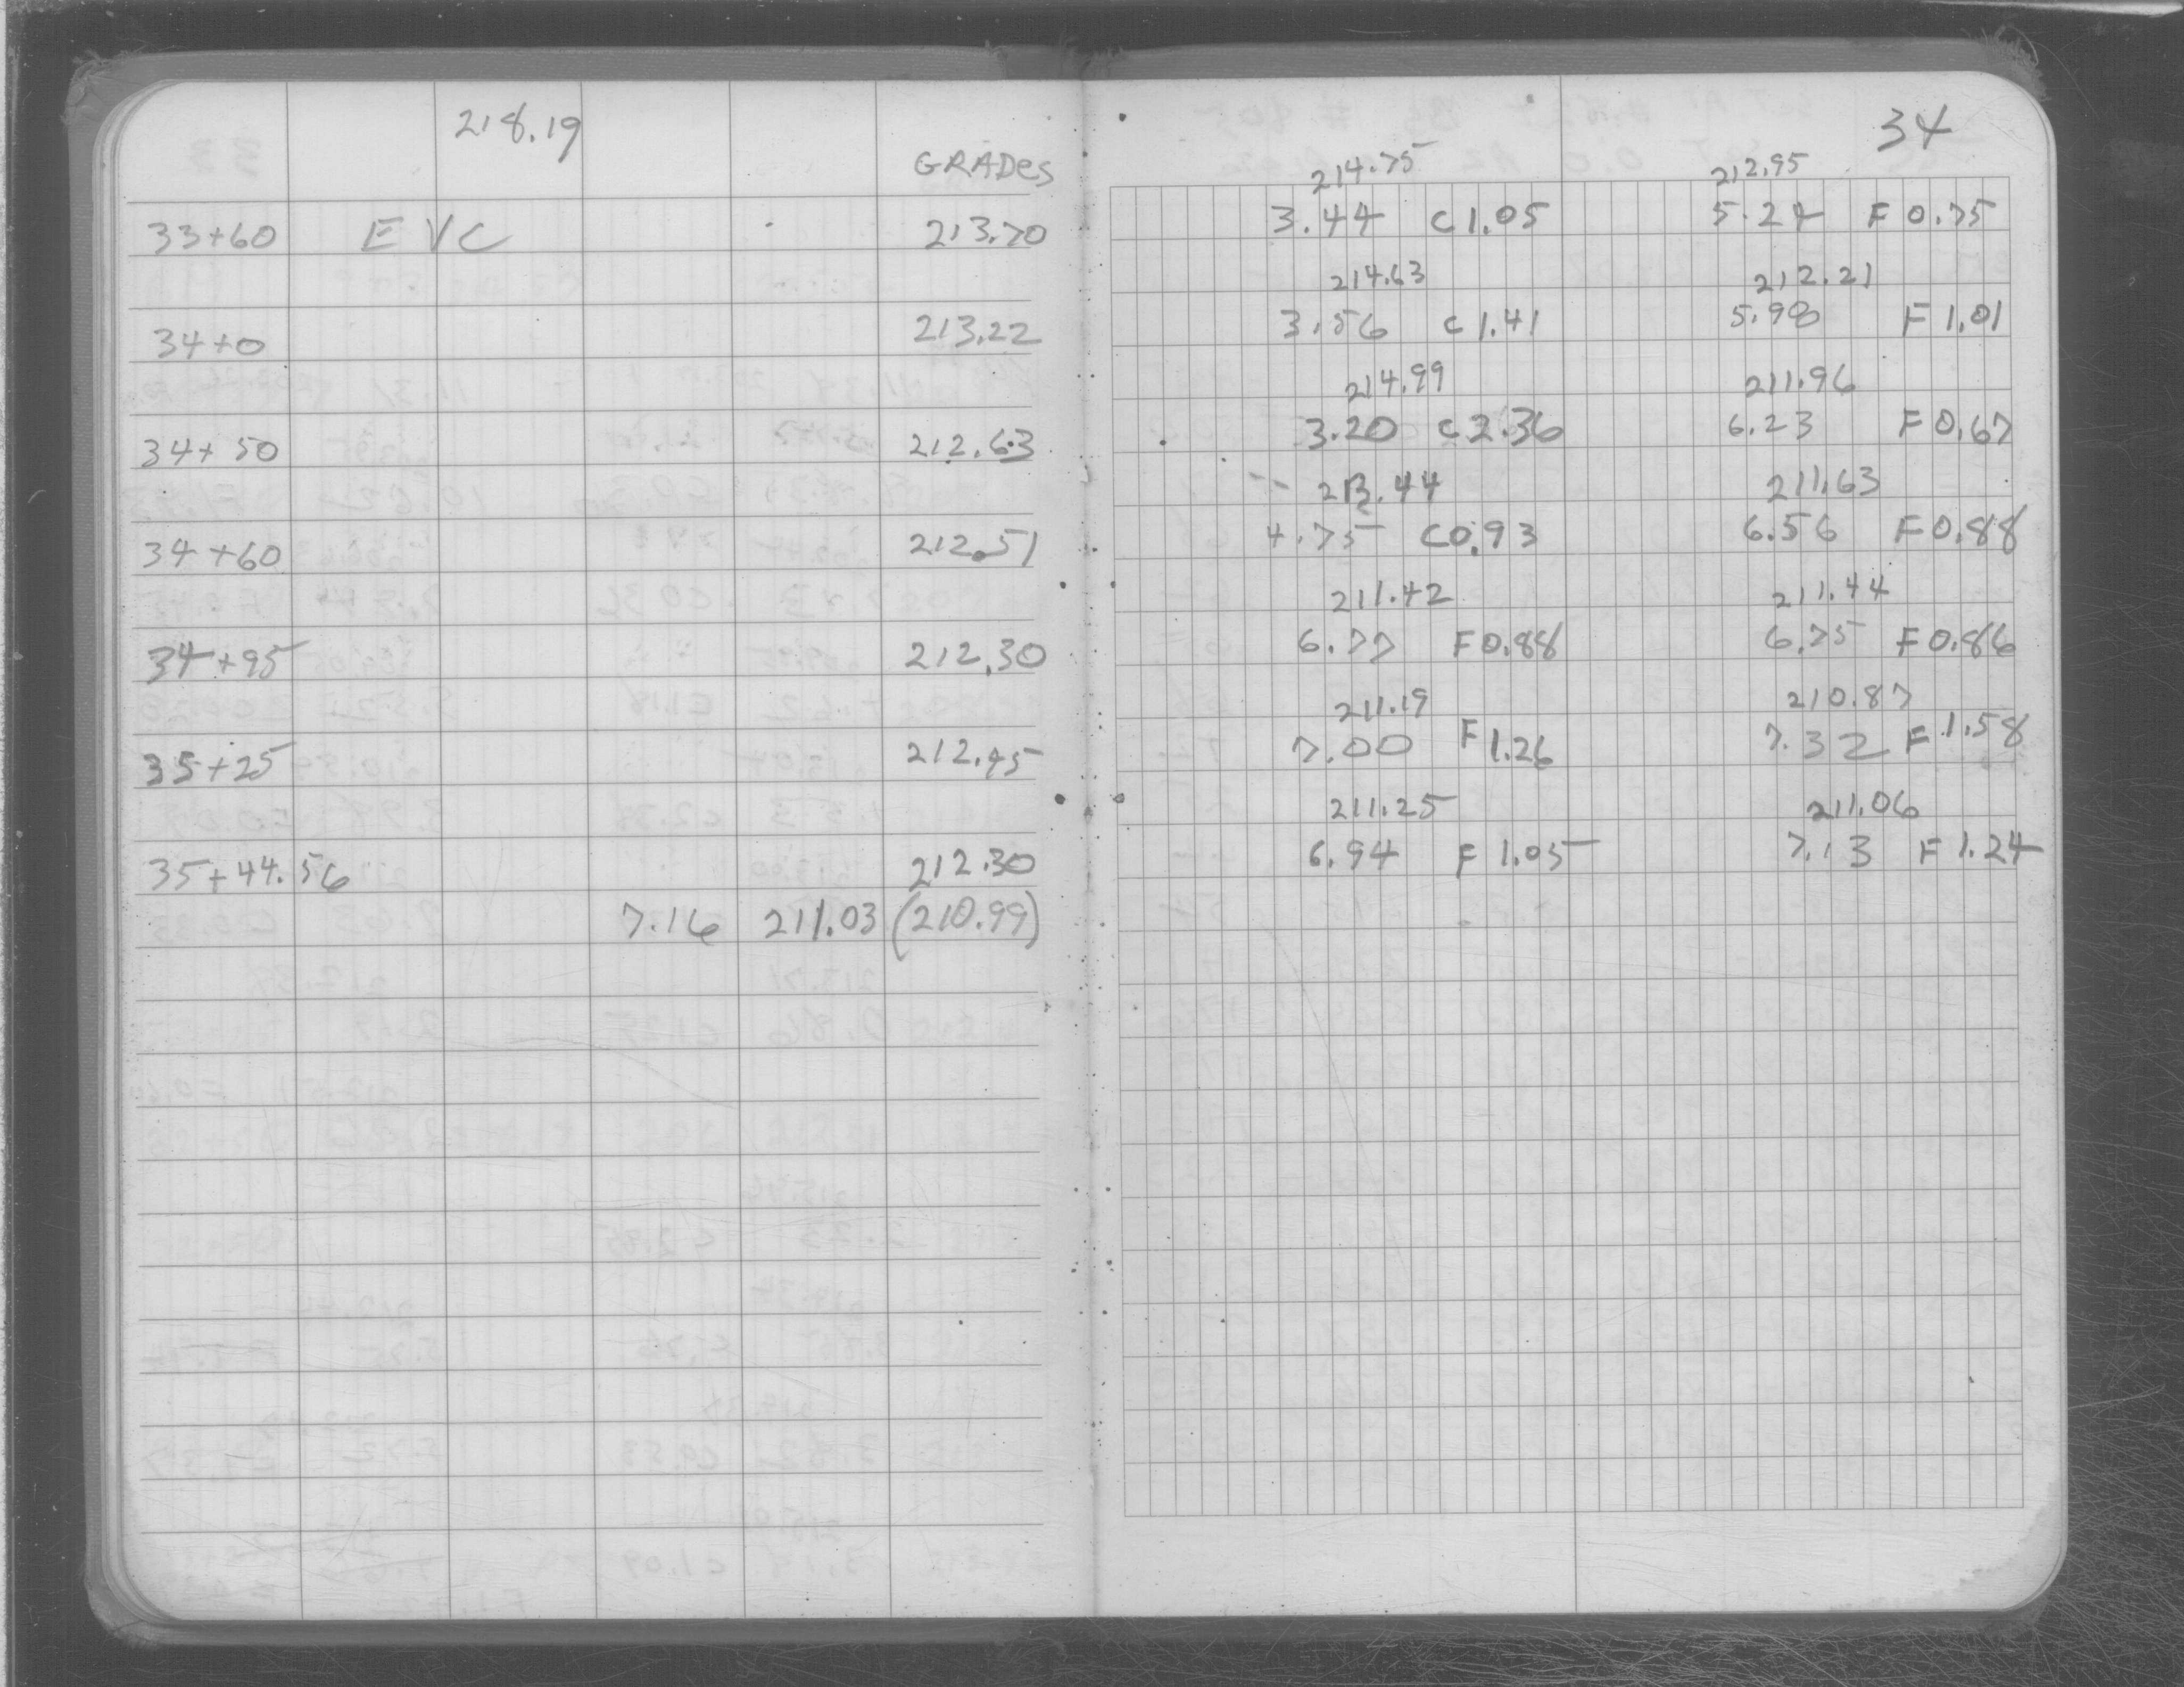 218.19
GRADes
33+60 EVC 213.70
34+0 213.22
34+50 212.63
34+60 212.51
34+95 212.30
35+25 212.45
35+44.56 212.30
7.16 211.03 (210.99)
34
214.75 212.95
3.44 C1.05 5.24 F0.75
214.63 212.21
3.56 C1.41 5.98 F1.01
214.99 211.96
3.20 C2.36 6.23 F0.67
213.44 211.63
4.75 C0.93 6.56 F0.88
211.42 211.44
6.77 F0.88 6.75 F0.86
211.19 210.87
7.00 F1.26 7.32 F1.58
211.25 211.06
6.94 F1.05 7.13 F1.24